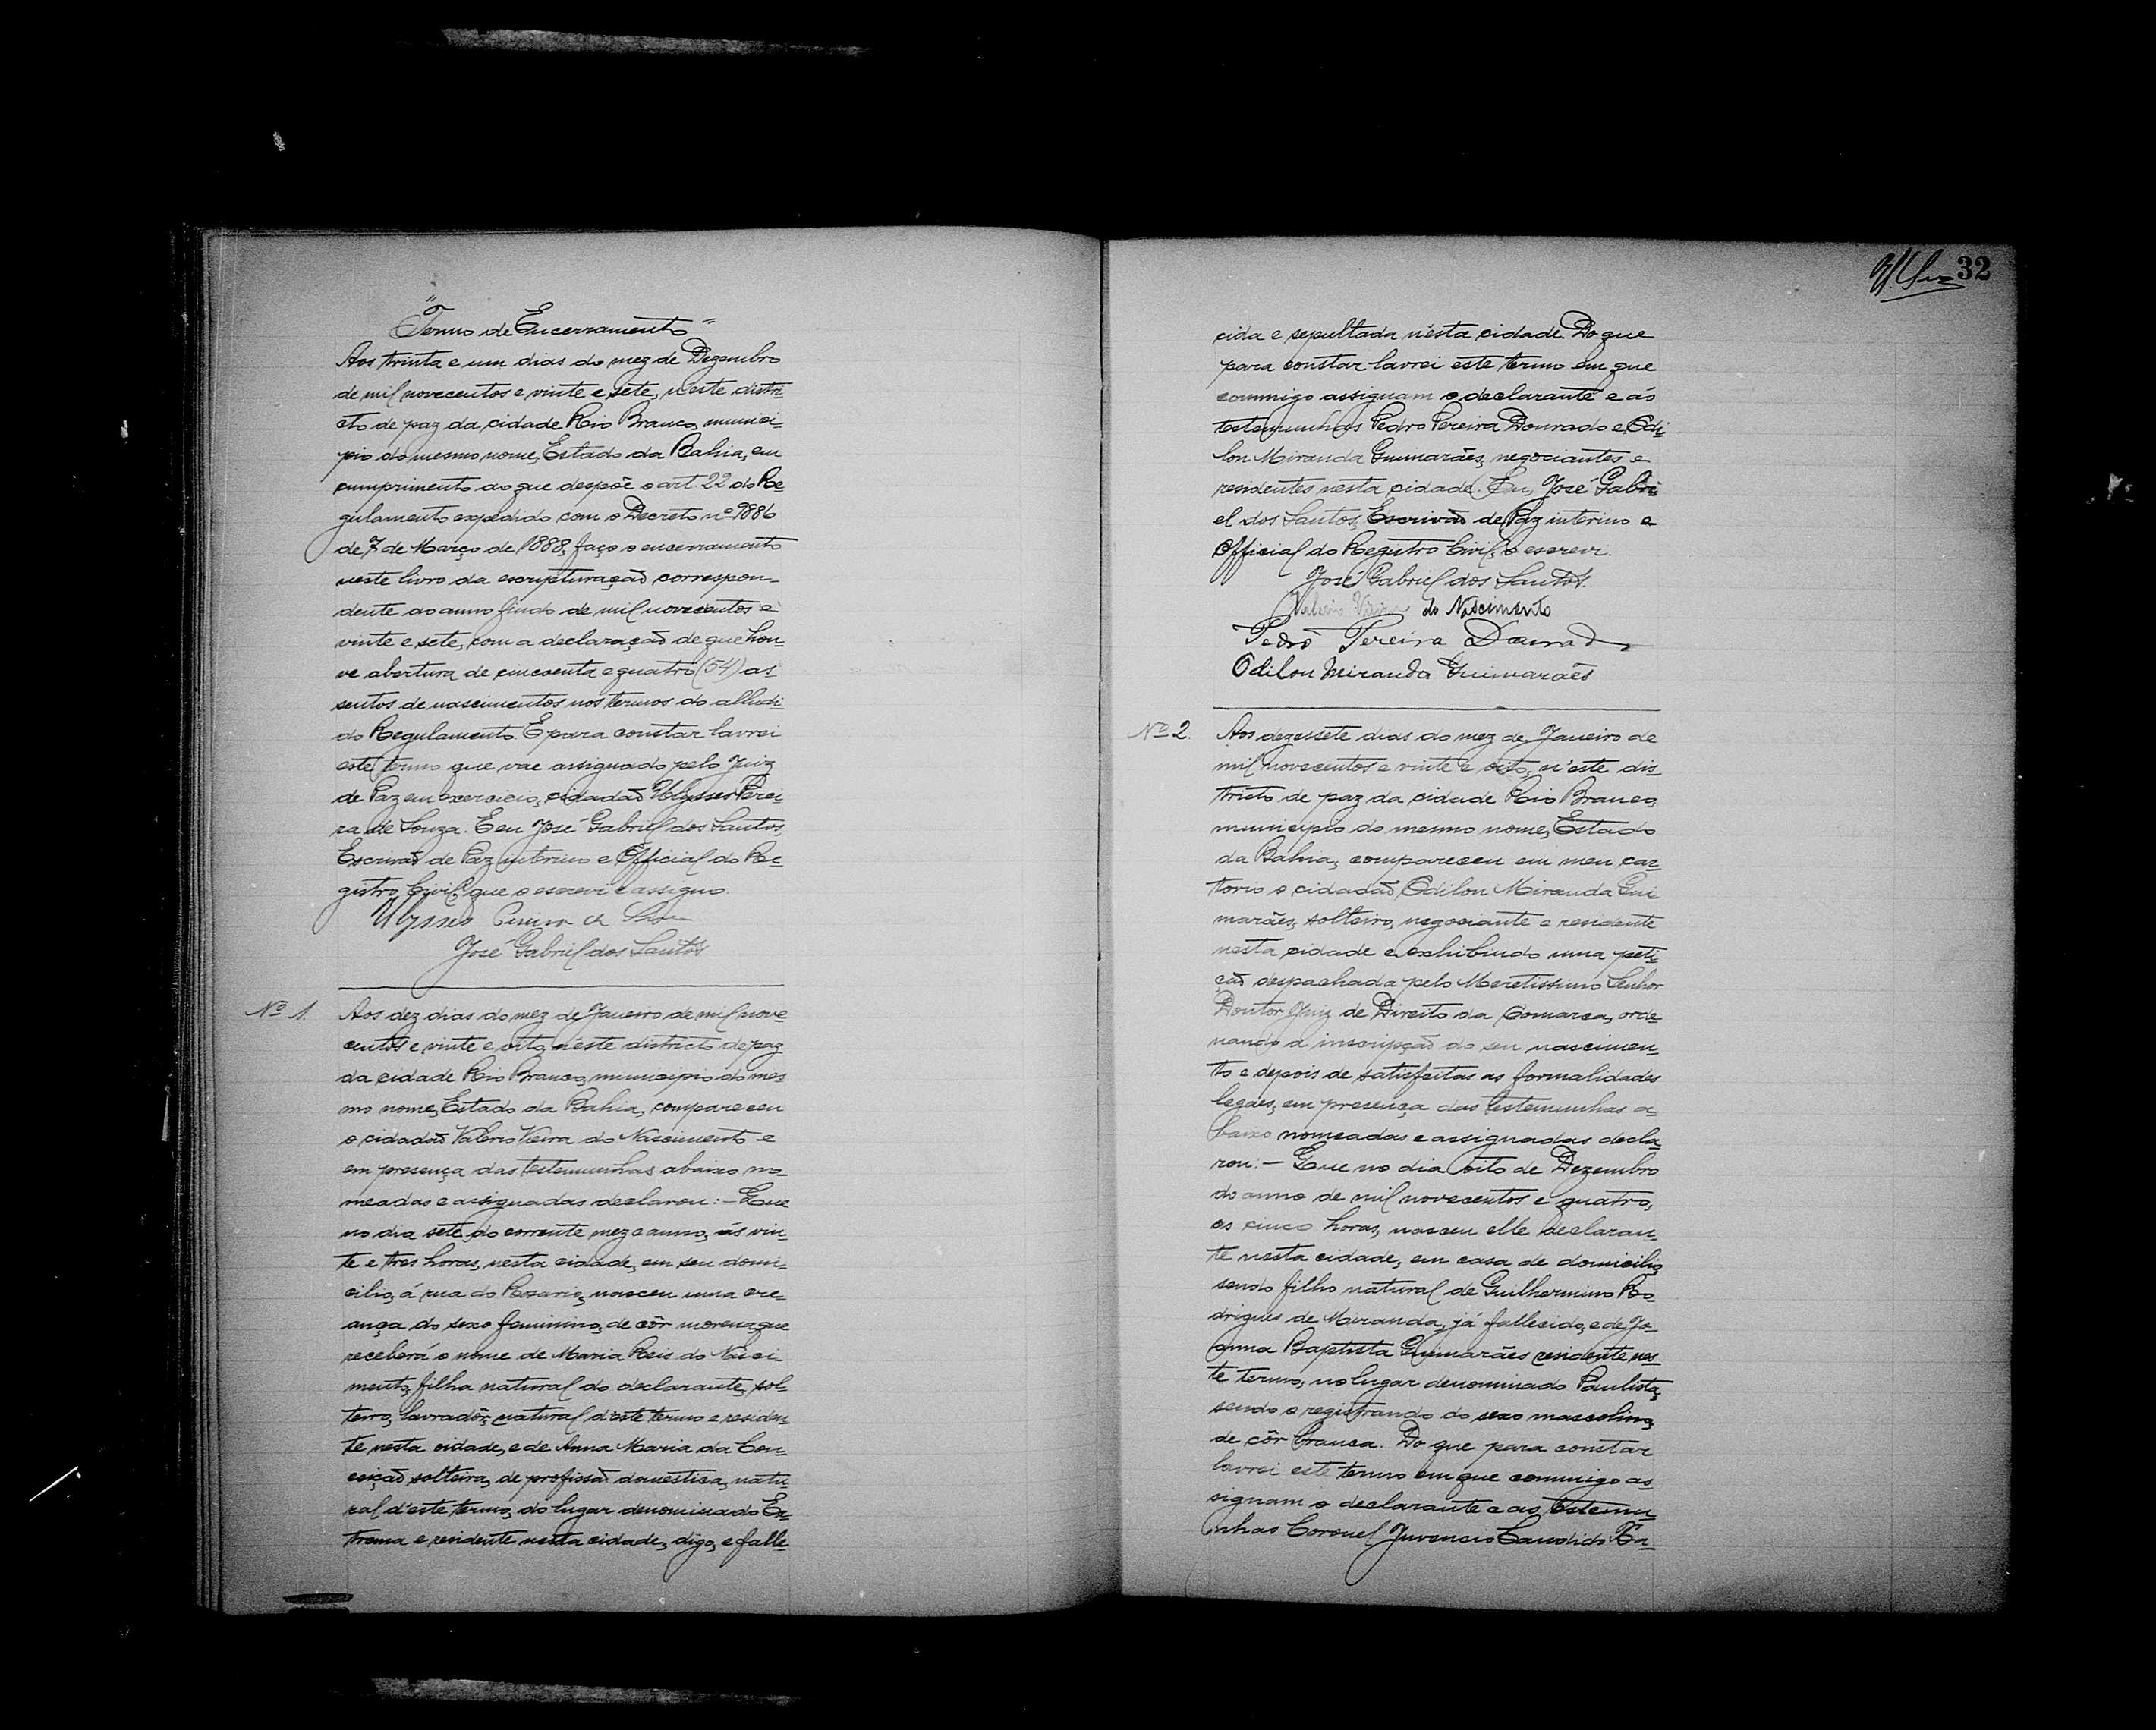 "Termo de Encerramento"
Aos trinta e um dias do mez de Dezembro
de mil novecentos e vinte e sete, n'este distri-
cto de paz da cidade Rio Branco, munici-
pio do mesmo nome, Estado da Bahia, em
cumprimento ao que despõe o art. 22 do Re-
gulamento expedido com o Decreto nº 9886
de 7 de Março de 1888, faço o encerramento
neste livro da escripturação correspon-
dente ao anno findo de mil novecentos e
vinte e sete, com a declaração de que hou-
ve abertura de cincoenta e quatro (54) as
sentos de nascimentos nos termos do alludi-
do Regulamento. E para constar lavrei
este termo que vae assignado pelo Juiz
de Paz em exercicio, cidadão Ulysses Perei-
ra de Souza. E eu José Gabriel dos Santos,
Escrivão de Paz interino e Official do Re-
gistro Civil, que o escrevi e assigno.
Ulysses Pereira de Souza
José Gabriel dos Santos
Nº 1. Aos dez dias do mez de Janeiro de mil nove-
centos e vinte e oito, n'este districto de paz
da cidade Rio Branco, municipio do mes-
mo nome, Estado da Bahia, compareceu
o cidadão Valerio Vieira do Nascimento e
em presença das testemunhas abaixo no-
meadas e assignadas declarou: - Que
no dia sete do corrente mez e anno, ás vin-
te e tres horas, nesta cidade, em seu domi-
cilio, á rua do Rosario, nasceu uma cre-
ança do sexo feminino, de côr morena, que
receberá o nome de Maria Reis do Nasci-
mento, filha natural do declarante, sol-
teiro, lavradôr, natural d'este termo e residen-
te nesta cidade, e de Anna Maria da Con-
ceição solteira, de profissão domestica, natu-
ral d'este termo, do lugar denominado Ex-
trema e residente nesta cidade, digo, e falle-
32
cida e sepultada n'esta cidade. Do que
para constar lavrei este termo em que
commigo assignam o declarante e ás
testemunhas Pedro Pereira Dourado e Odi-
lon Miranda Guimarães, negociantes e
residentes nesta cidade. Eu, José Gabri-
el dos Santos, Escrivão de Paz interino e
Official do Registro Civil, o escrevi.
José Gabriel dos Santos.
Valerio Vieira do Nascimento
Pedro Pereira Dourado
Odilon Miranda Guimarães
Nº 2. Aos dezessete dias do mez de Janeiro de
mil novecentos e vinte e oito, n'este dis-
tricto de paz da cidade Rio Branco,
municipio do mesmo nome, Estado
da Bahia, compareceu em meu car-
torio o cidadão Odilon Miranda Gui-
marães, solteiro, negociante e residente
nesta cidade e exhibindo uma peti-
ção despachada pelo Meretissimo Senhor
Doutor Juiz de Direito da Comarca, orde-
nando a inscripção do seu nascimen-
to e depois de satisfeitas as formalidades
legaes, em presença das testemunhas a-
baixo nomeadas e assignadas decla
rou: - Que no dia oito de Dezembro
do anno de mil novecentos e quatro,
as cinco horas, nasceu elle declaran-
te nesta cidade, em casa de domicilio,
sendo filho natural de Guilhermino Ro-
drigues de Miranda, já fallecido, e de Jo-
anna Baptista Guimarães residente nes-
te termo, no lugar denominado Paulista,
sendo o registrando do sexo mascolino,
de côr branca. Do que para constar
lavrei este termo em que commigo as-
signam o declarante e as testemu-
nhas Coronel Juvencio Candido